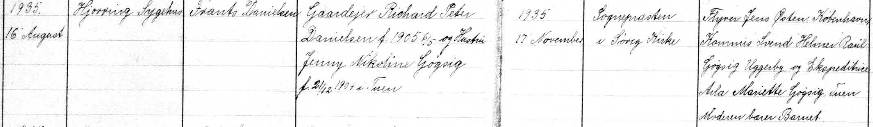 1935
16 August
Hjørring Sygehus
Frants Danielsen
Gaardejer Richard Peter
Danielsen f. 1905 6/5 og Hustru
Jenny Nikoline Gøgsig
f. 21/12 1900 i Tuen
1935
17 November
Sognepræsten
i Sörig Kirke
Thyra Jens Østen. København
Kommis Svend Helmer Raal
Gøgsig Uggerby og Ekspeditrice
Arla Mariette Gøgsig Tuen
Moderen barer Barnet.